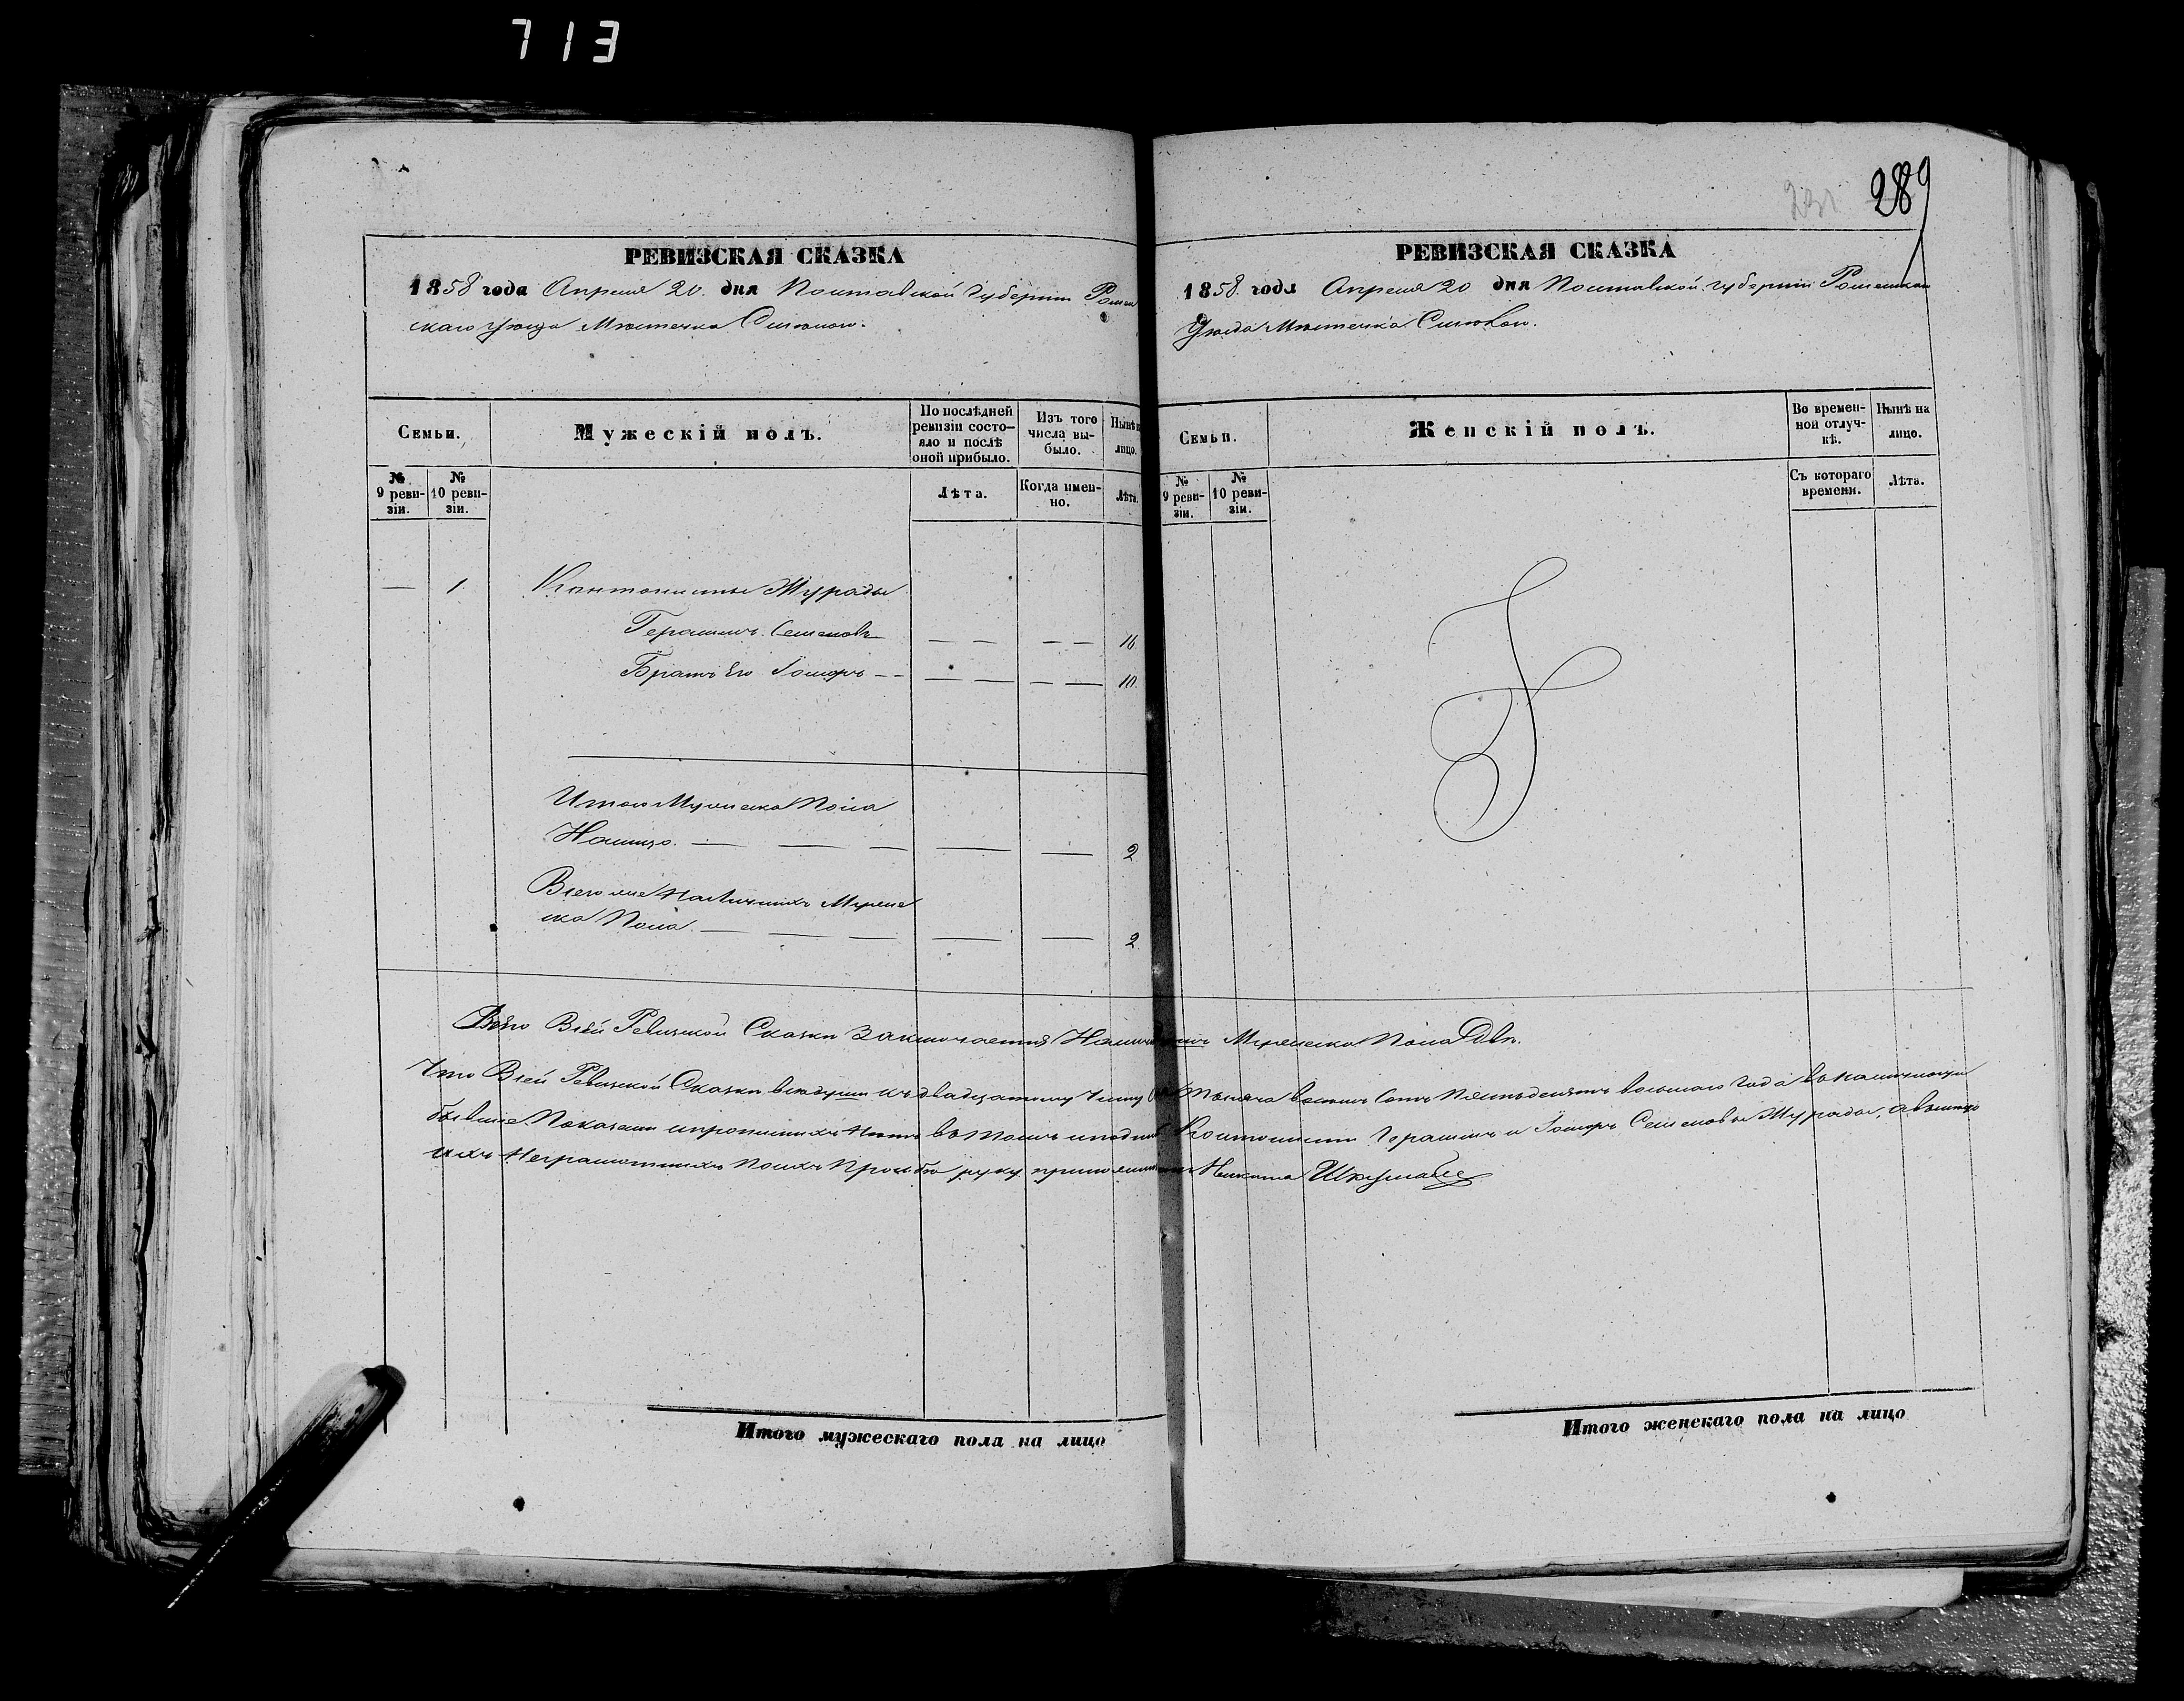 713
231 289
РЕВИЗСКАЯ СКАЗКА
1858 года Апреля 20 дня Полтавской Губерніи Ромен
скаго уѣзда Мѣстечка Смѣлаго.
Семьи.
Мужескій полъ.
По послѣдней ревизіи состояло и послѣ оной прибыло.
Изъ того числа выбыло.
Нынѣ на лицо.
№ 9 ревизіи.
№ 10 ревизіи.
Лѣта.
Когда именно.
Лѣта.
— 1. Кантонисты Мурады
Герасимъ Семеновъ — — — — 16.
Братъ Его Іосифъ — — — — — — 10.
Итого Мужеска Пола
Налицо. — — — — — 2
Всего же Наличныхъ Мужеска
Пола. — — — — — 2
РЕВИЗСКАЯ СКАЗКА
1858 года Апреля 20 дня Полтавской губерніи Роменскаго
Уѣзда Мѣстечка Смѣлаго.
Семьи.
Женскій полъ.
Во временной отлучкѣ.
Нынѣ на лицо.
№ 9 ревизіи.
№ 10 ревизіи.
Съ котораго времени.
Лѣта.
Всего Всей Ревизской Сказки Заключается Мужеска Пола Двѣ.
Что Всей Ревизской Сказки къ двадцатому Числу восемь Сотъ Пятьдесятъ восьмаго Года
бывшіе Показаны и прописныхъ Нѣтъ въ Томъ Кантонисты Герасимъ и Іосифъ Семеновы Мурады, а вмѣсто
ихъ Неграмотныхъ По ихъ Прозьбѣ руку приложилъ Никита
Итого мужескаго пола на лицо
Итого женскаго пола на лицо